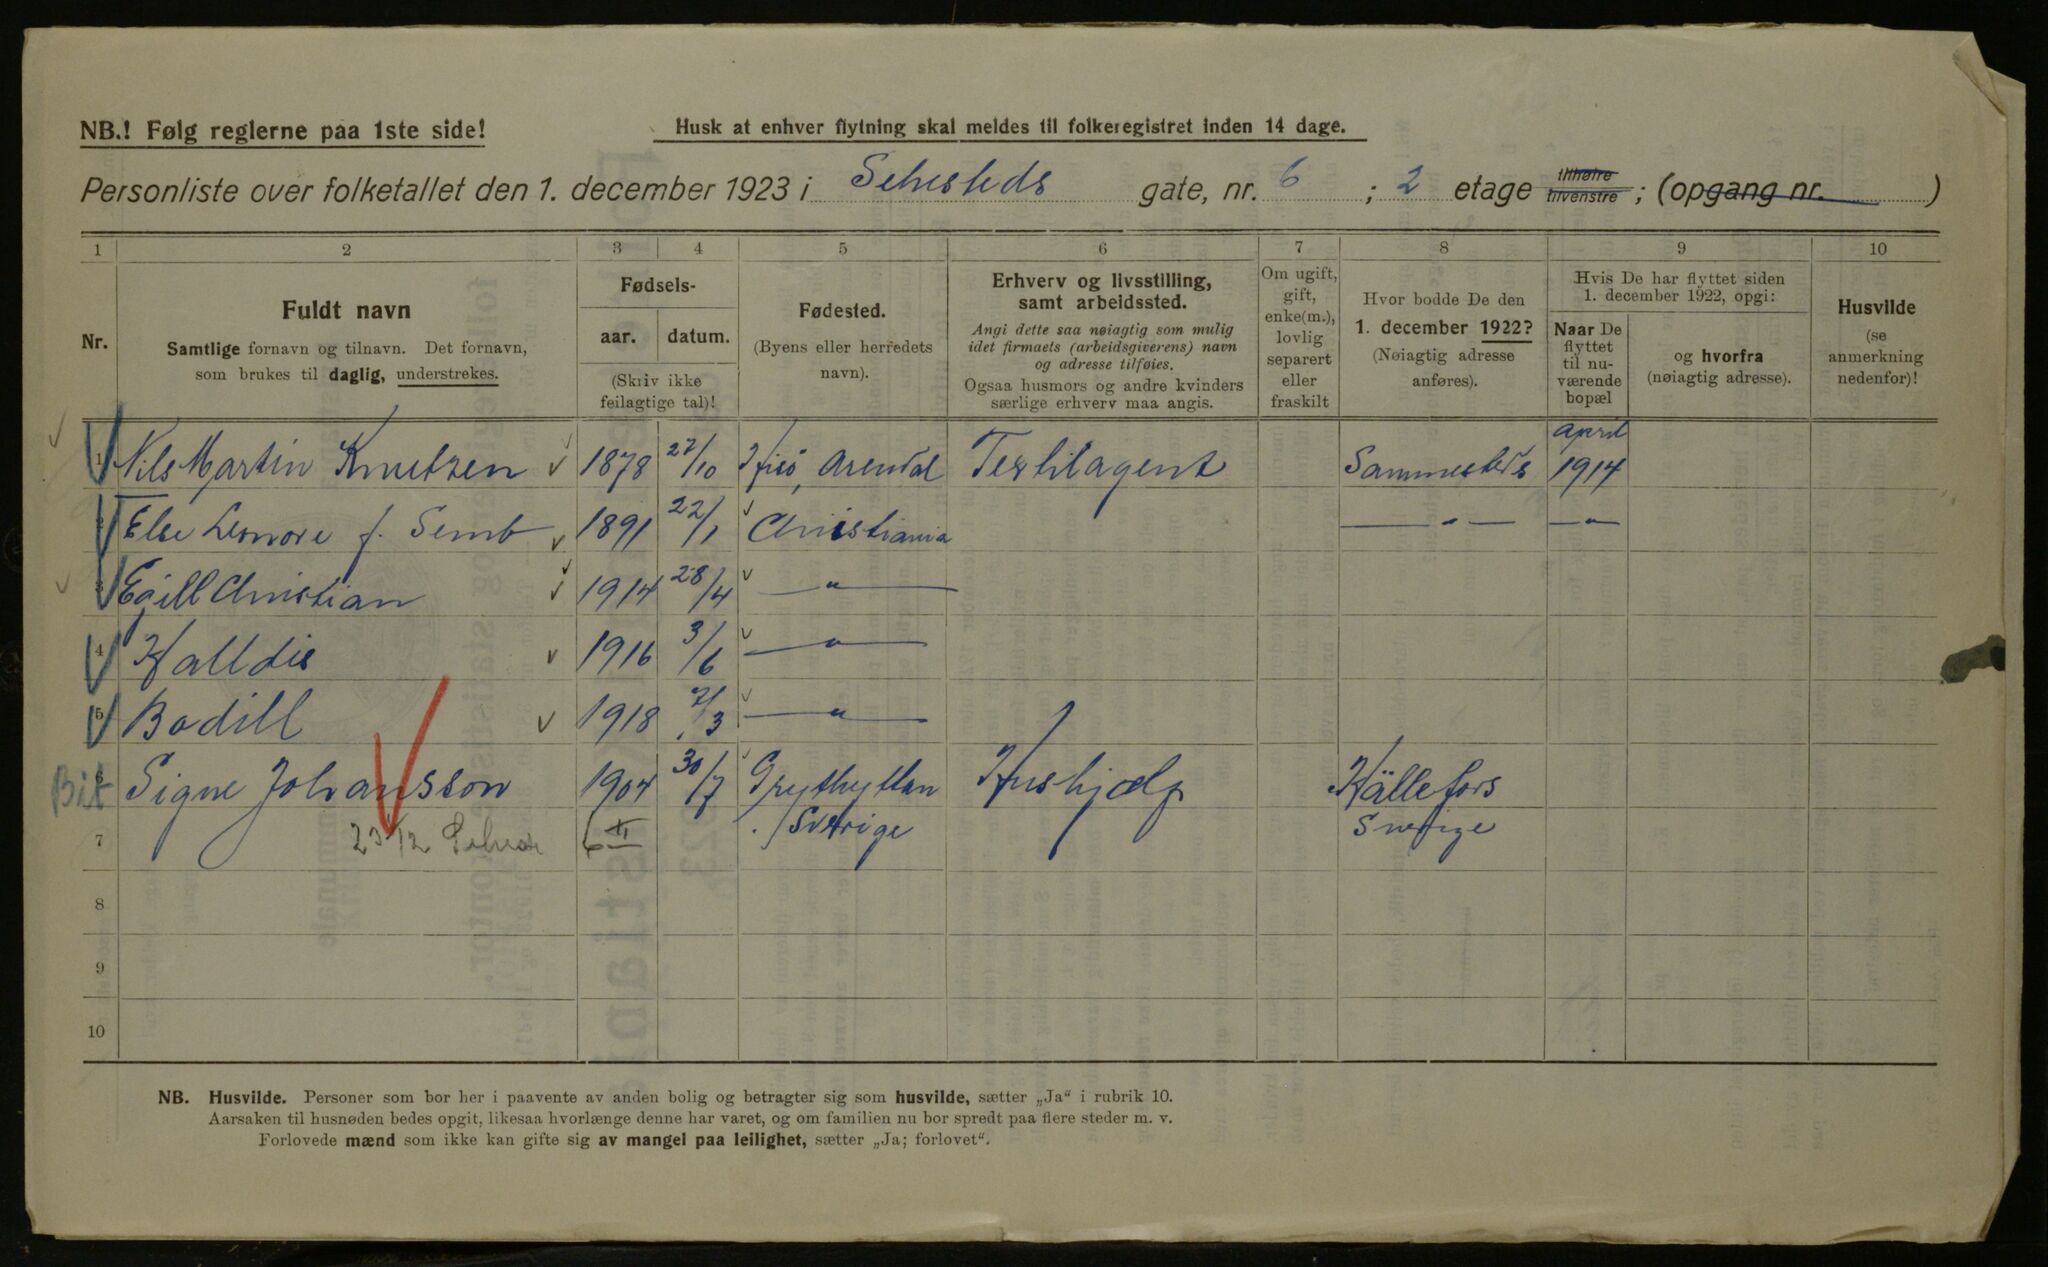 NB.! Følg reglerne paa 1ste side!
Husk at enhver flytning skal meldes til folkeregistret inden 14 dage.
Personliste over folketallet den 1. december 1923 i Sehesteds gate, nr. 6 ; 2 etage tilhøire tilvenstre ; (opgang nr. )
1 2 3 4 5 6 7 8 9 10
Nr.
Fuldt navn
Samtlige fornavn og tilnavn. Det fornavn,
som brukes til daglig, understrekes.
Fødsels-
aar. datum.
(Skriv ikke
feilagtige tal)!
Fødested.
(Byens eller herredets
navn).
Erhverv og livsstilling,
samt arbeidssted.
Angi dette saa nøiagtig som mulig
idet firmaets (arbeidsgiverens) navn
og adresse tilføies.
Ogsaa husmors og andre kvinders
særlige erhverv maa angis.
Om ugift,
gift,
enke(m.),
lovlig
separert
eller
fraskilt
Hvor bodde De den
1. december 1922?
(Nøiagtig adresse
anføres).
Hvis De har flyttet siden
1. december 1922, opgi:
Naar De
flyttet
til nu-
værende
bopæl
og hvorfra
(nøiagtig adresse).
Husvilde
(se
anmerkning
nedenfor)!
1 Nils Martin Knutzen 1878 27/10 Hisö, Arendal Textilagent Sammesteds april 1914
2 Else Leonore f. Semb 1891 22/1 Christiania — " — — " —
3 Egill Christian 1914 28/4 — " —
4 Halldis 1916 3/6 — " —
5 Bodill 1918 7/3 — " —
Bit 6 Signe Johansson 1904 30/7 Grythyttan Hushjælp Källefors
7 23/12 6 II / Sverige Sverige
8
9
10
NB. Husvilde. Personer som bor her i paavente av anden bolig og betragter sig som husvilde, sætter „Ja“ i rubrik 10.
Aarsaken til husnøden bedes opgit, likesaa hvorlænge denne har varet, og om familien nu bor spredt paa flere steder m. v.
Forlovede mænd som ikke kan gifte sig av mangel paa leilighet, sætter „Ja; forlovet“.